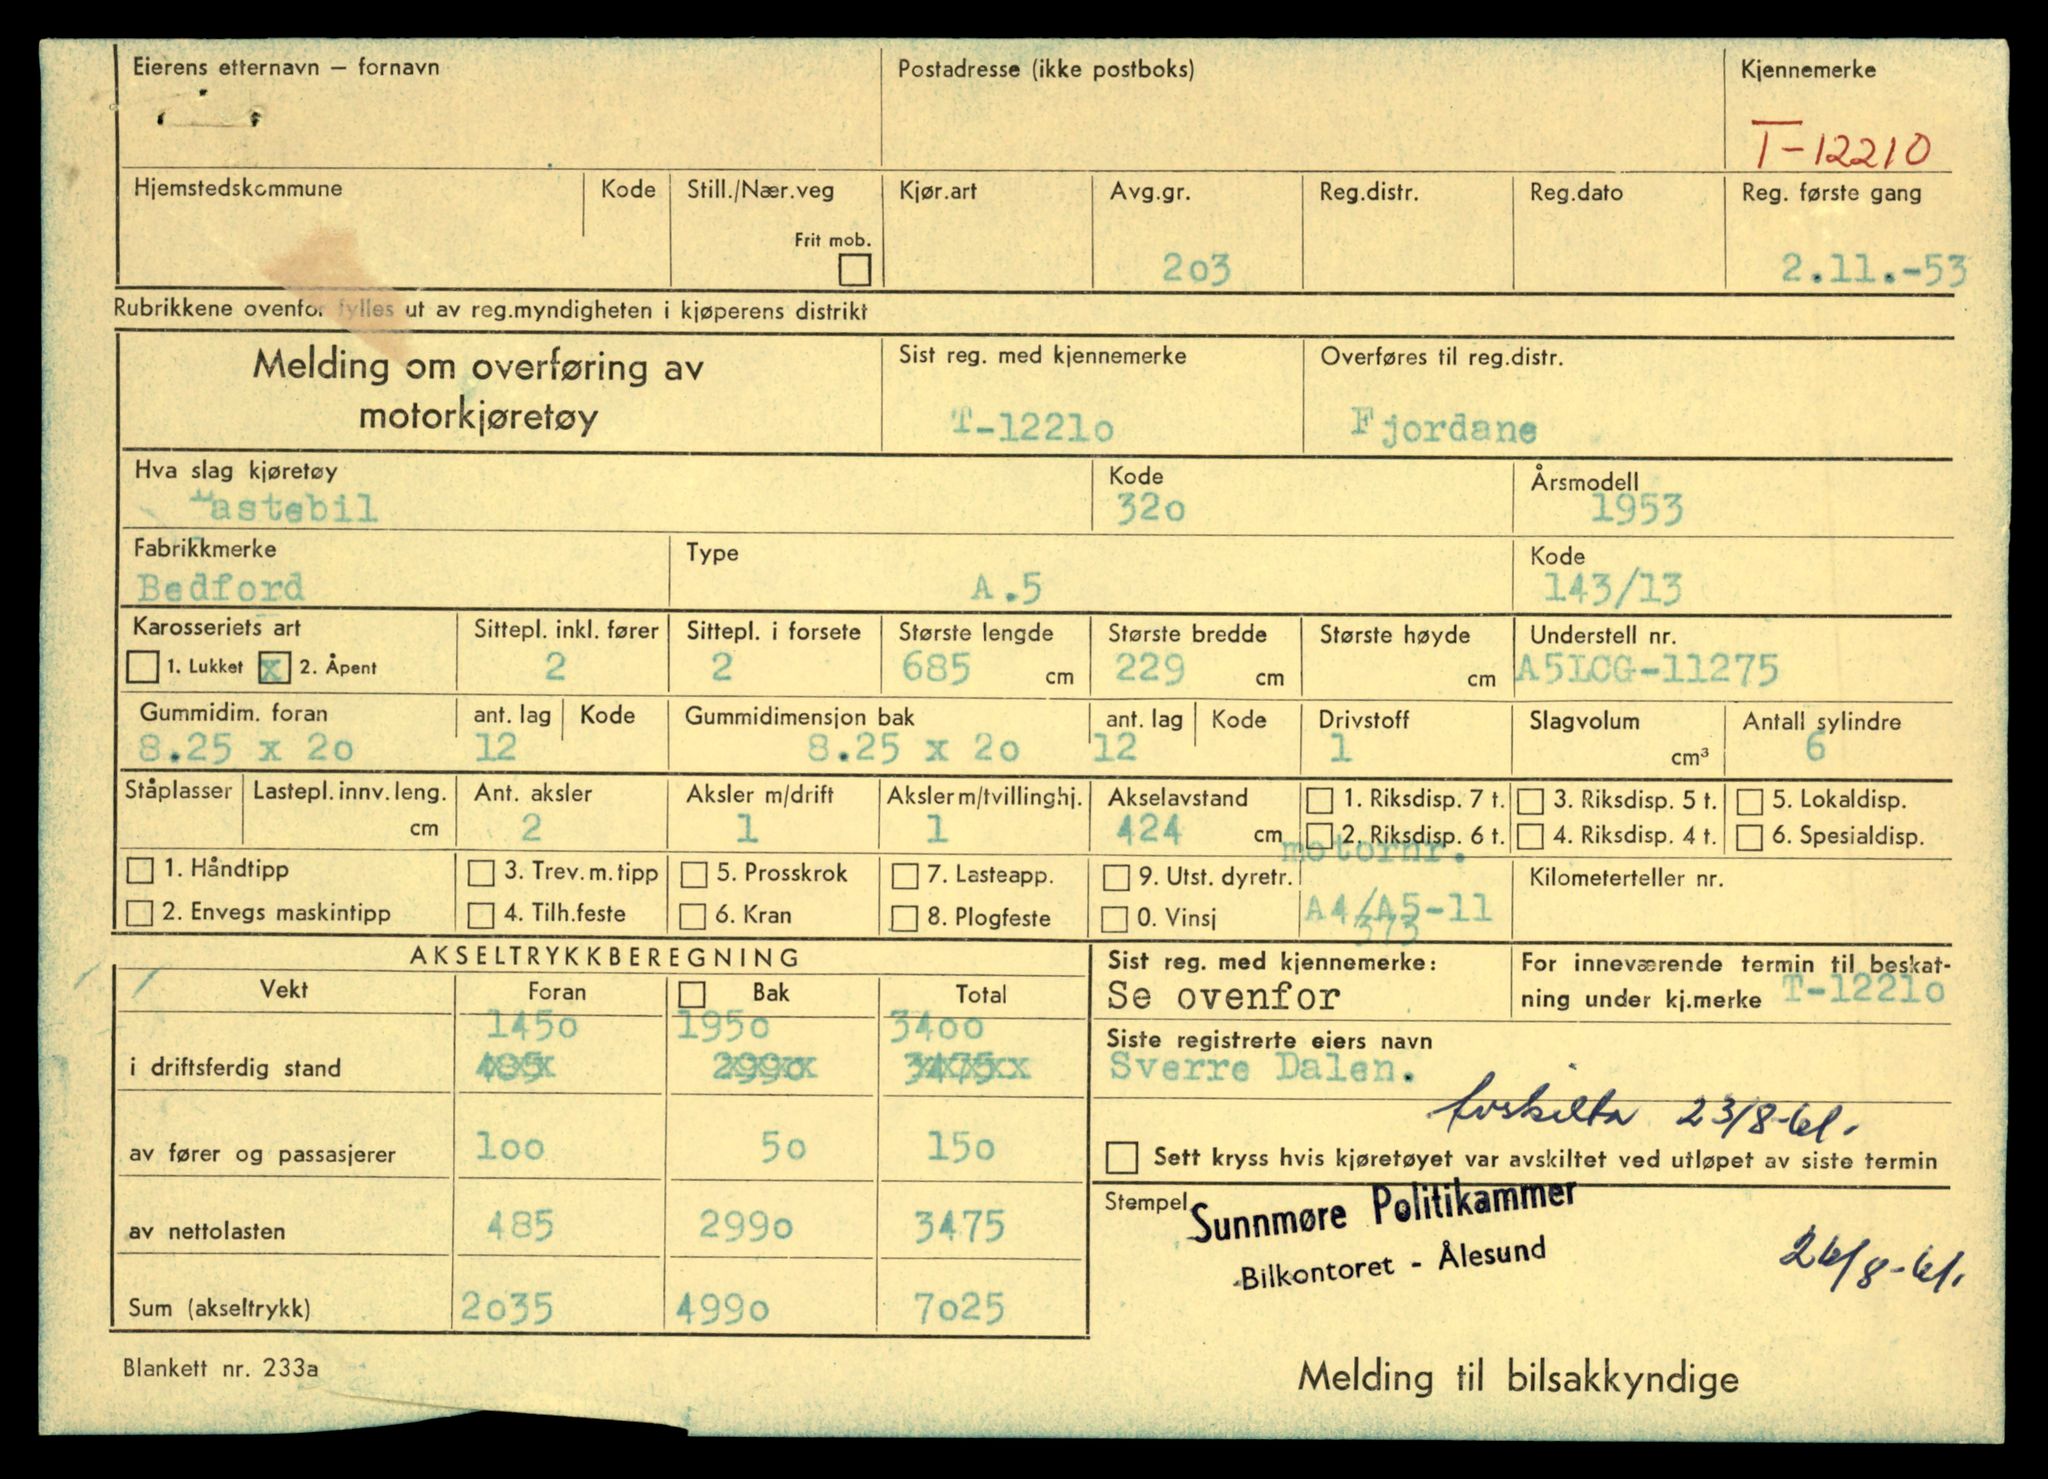 Eierens etternavn – fornavn
Postadresse (ikke postboks)
Kjennemerke
T-12210
Hjemstedskommune
Kode
Still./Nær.veg
Frit mob.
Kjør.art
Avg.gr.
203
Reg.distr.
Reg.dato
Reg. første gang
2.11.-53
Rubrikkene ovenfor fylles ut av reg.myndigheten i kjøperens distrikt
Melding om overføring av
motorkjøretøy
Sist reg. med kjennemerke
T-12210
Overføres til reg.distr.
Fjordane
Hva slag kjøretøy
Lastebil
Kode
320
Årsmodell
1953
Fabrikkmerke
Bedford
Type
A.5
Kode
143/13
Karosseriets art
1. Lukket x 2. Åpent
Sittepl. inkl. fører
2
Sittepl. i forsete
2
Største lengde
685 cm
Største bredde
229 cm
Største høyde
cm
Understell nr.
A5LCG-11275
Gummidim. foran
8.25 x 20
ant. lag
12
Kode
Gummidimensjon bak
8.25 x 20
ant. lag
12
Kode
Drivstoff
1
Slagvolum
cm³
Antall sylindre
6
Ståplasser
Lastepl. innv. leng.
cm
Ant. aksler
2
Aksler m/drift
1
Aksler m/tvillinghj.
1
Akselavstand
424 cm
1. Riksdisp. 7 t.
2. Riksdisp. 6 t.
3. Riksdisp. 5 t.
4. Riksdisp. 4 t.
5. Lokaldisp.
6. Spesialdisp.
1. Håndtipp
2. Envegs maskintipp
3. Trev. m. tipp
4. Tilh.feste
5. Prosskrok
6. Kran
7. Lasteapp.
8. Plogfeste
9. Utst. dyretr.
0. Vinsj
motornr.
A4/A5-11
373
Kilometerteller nr.
AKSELTRYKKBEREGNING
Vekt
Foran
Bak
Total
1450 1950 3400
i driftsferdig stand 485 2990 3475
av fører og passasjerer 100 50 150
av nettolasten 485 2990 3475
Sum (akseltrykk) 2035 4990 7025
Sist reg. med kjennemerke:
Se ovenfor
For inneværende termin til beskat-
ning under kj.merke T-12210
Siste registrerte eiers navn
Sverre Dalen.
23/8-61.
Sett kryss hvis kjøretøyet var avskiltet ved utløpet av siste termin
Stempel
Sunnmøre Politikammer
Bilkontoret - Ålesund
26/8-61.
Blankett nr. 233a
Melding til bilsakkyndige